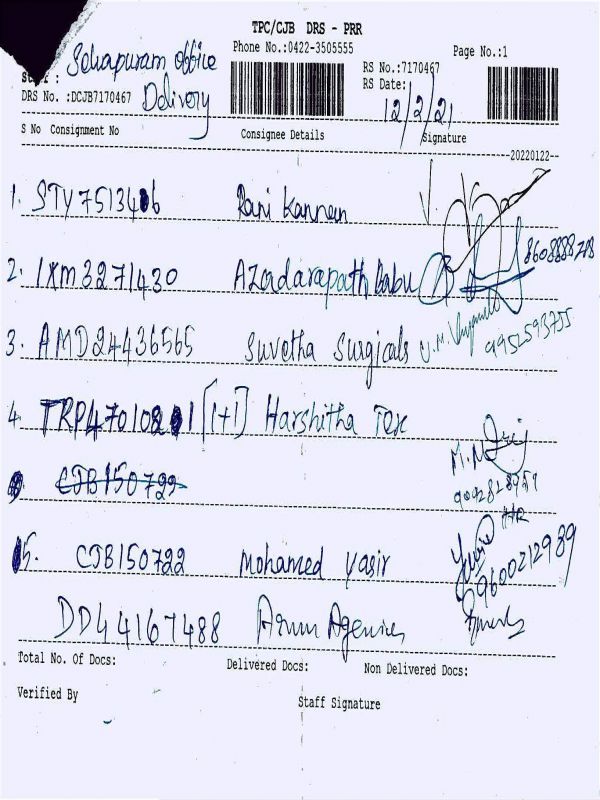 TPC/CJB DRS - PRR
Phone No.:0422-3505555 Page No.:1
office
Delivery
RS No.:7170467
DRS No. :DCJB7170467 RS Date: 12/2/21
S No Consignment No Consignee Details Signature
20220122
1. STY 7513406 Rani Kannan
2. IXM3271430 Babu 8608888728
3. AMD24436565 Suvetha Surgicals 9952593755
4. [1+1] Harshitha Tex
M.N
CJB150722
5. CJB150722 Mohamed Yasir 9600212989
DD44167488 Arun Agencies
Total No. Of Docs: Delivered Docs: Non Delivered Docs:
Verified By Staff Signature